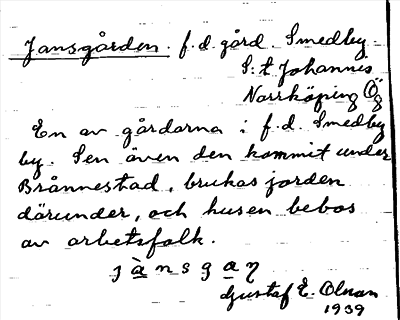 Jansgården. f.d. gård. Smedby
S:t Johannis
Norrköping Ög
En av gårdarna i f.d. Smedby
by. Sen även den kommit under
Brånnestad, brukas jorden
därunder, och husen bebos
av arbetsfolk.
jànsgaɳ
Gustaf E. Olman
1939